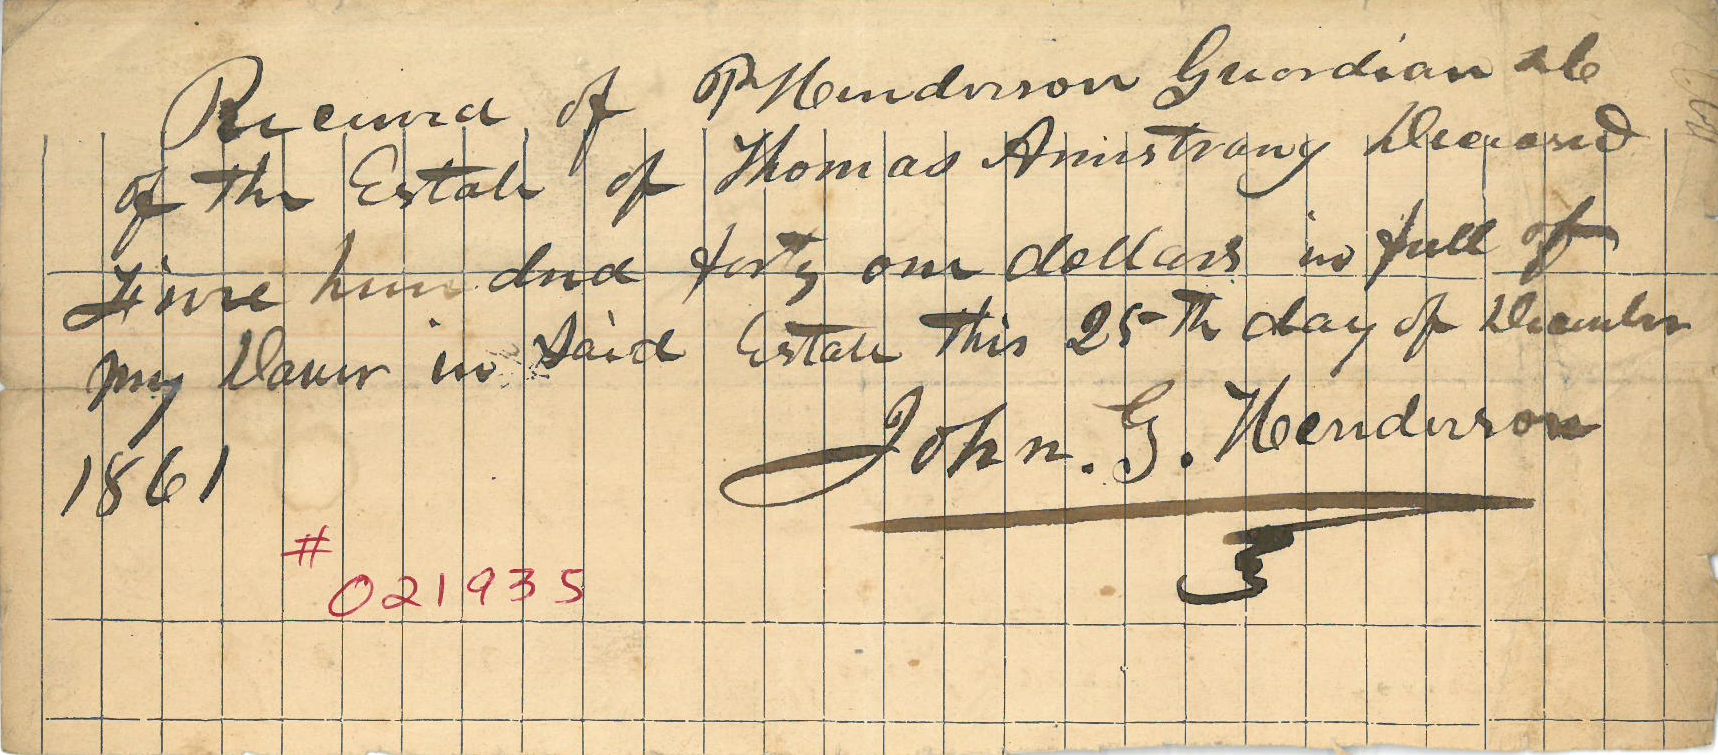 Received of P Henderson Guardian &c
of the Estate of Thomas Armstrong Deceased
hundred forty one dollars in full of
my Dower in Said Estate this 25th day of December
1861
John. G. Henderson
# 021935